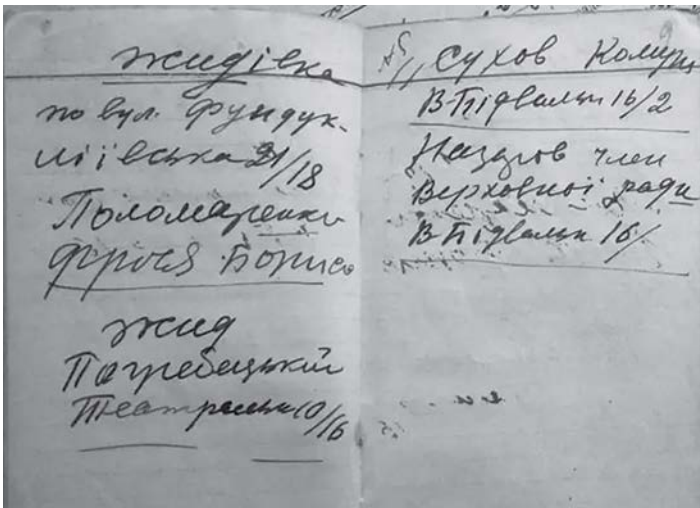 жидівка
по вул. Фундук-
ліївська 21/18
Поломаренко
Фрося Борисо
жид
Погребецький
Театральн 10/16
Сухов Комун
В-Підвальн 16/2
Назаров член
Верховної ради
В-Підвальн 16/